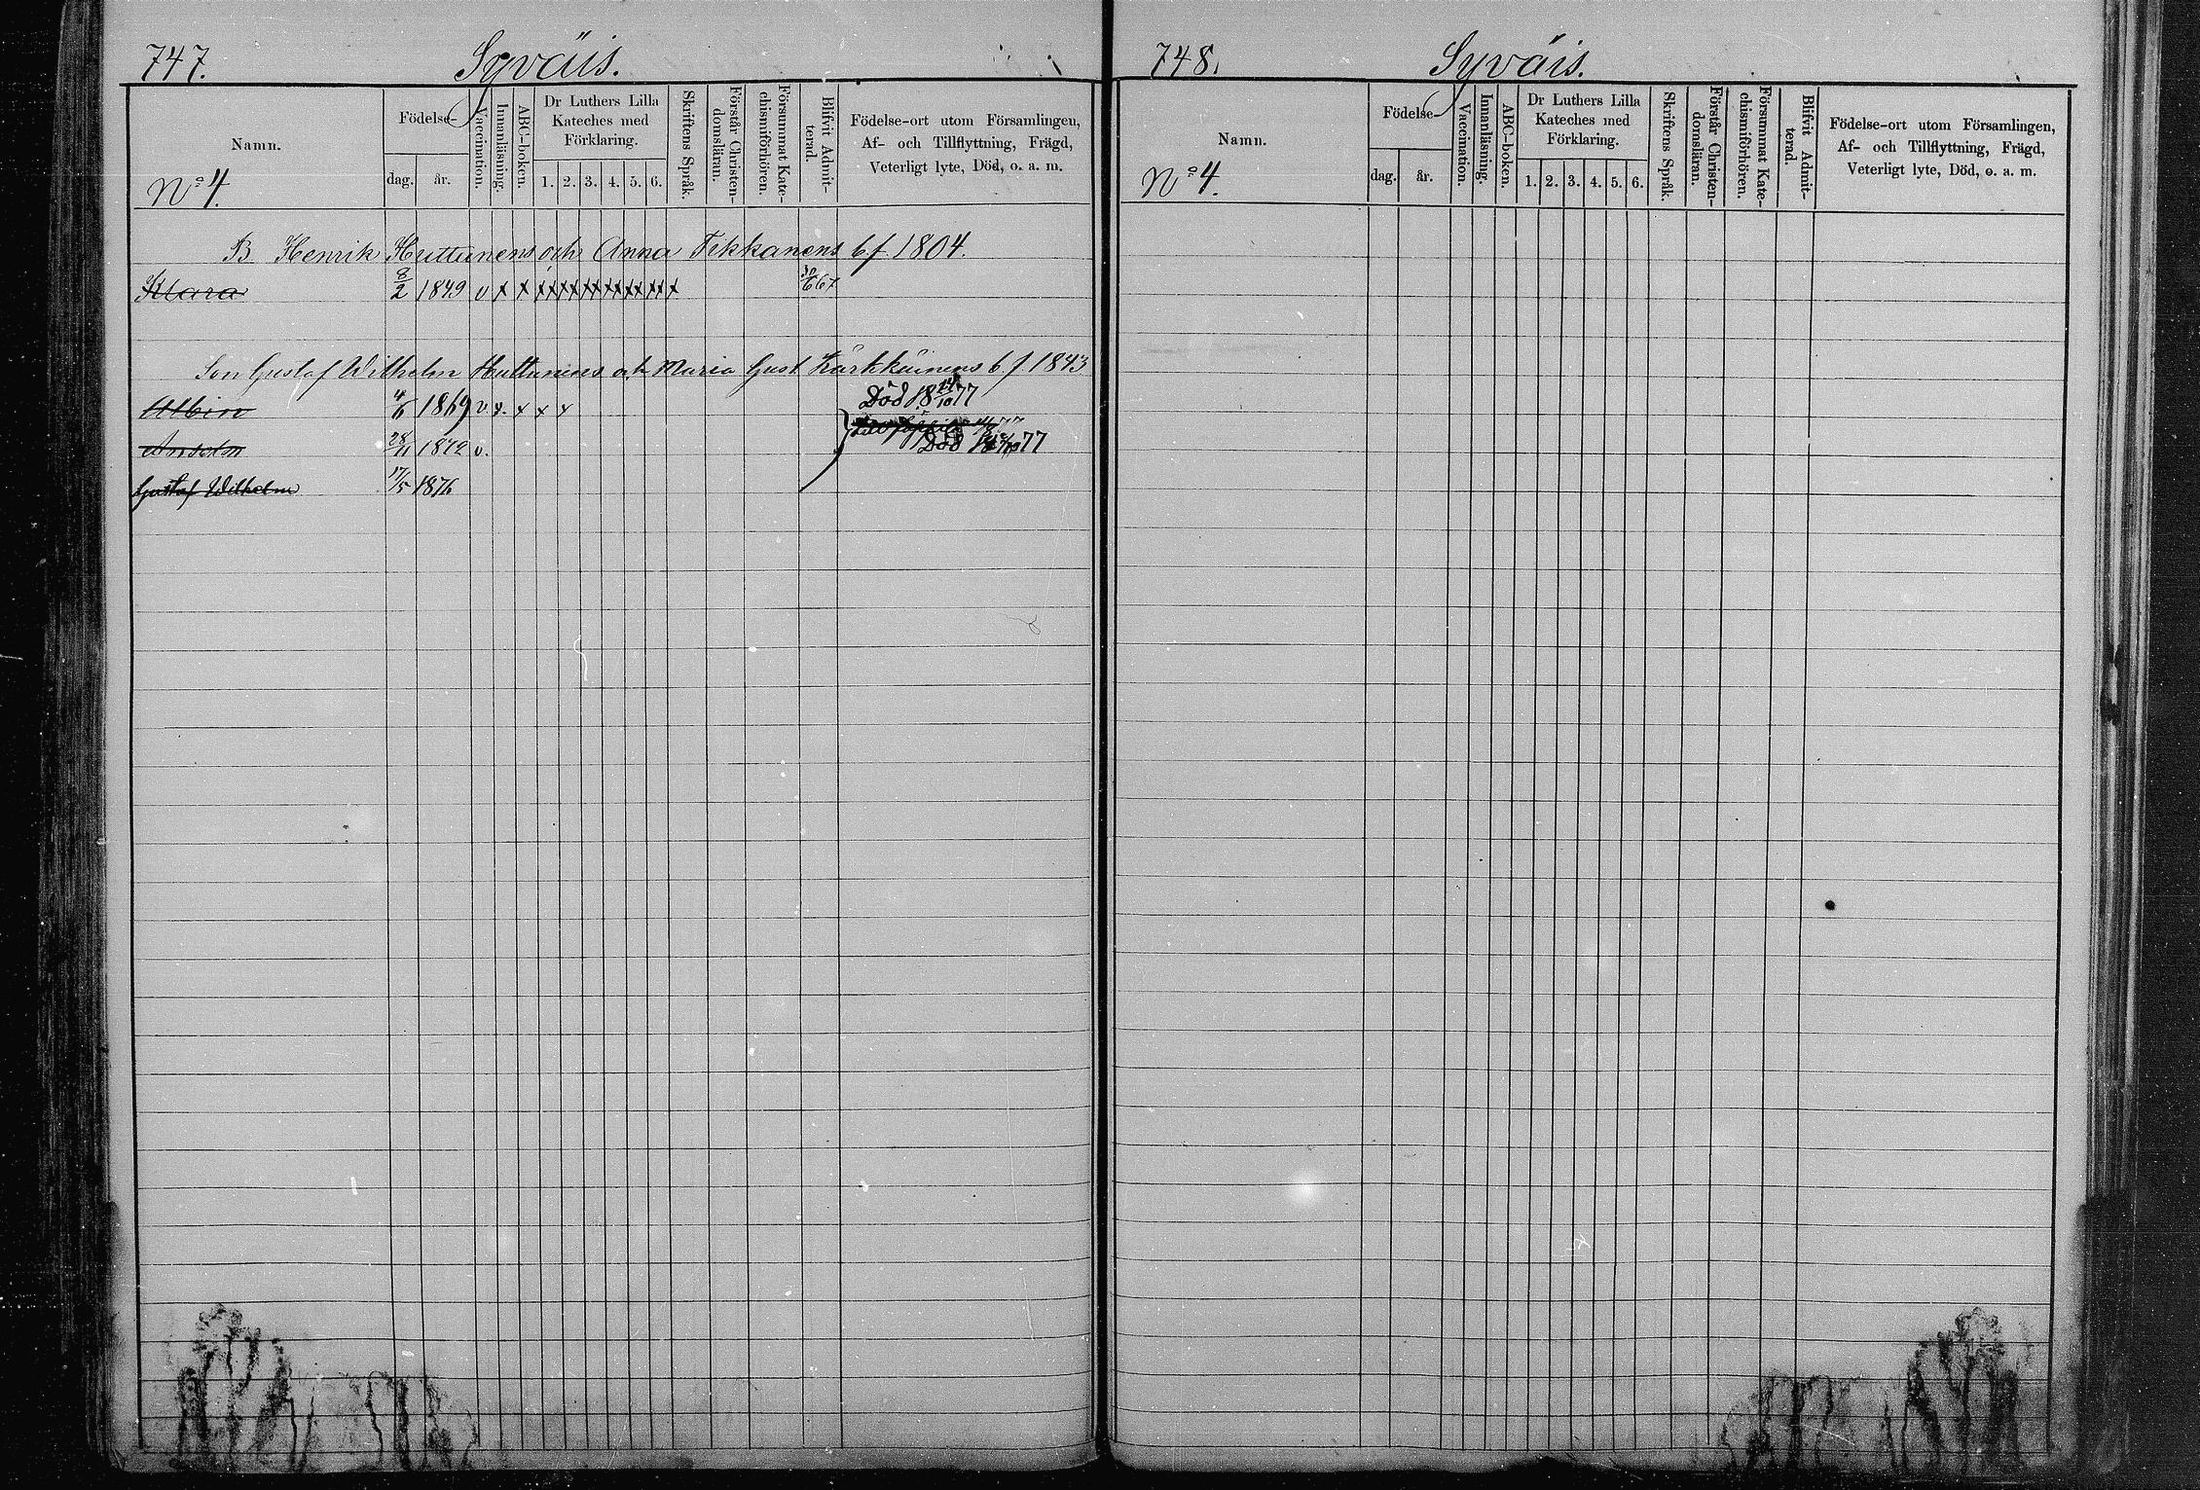 747.
Syväis.
Namn.
Födelse-
dag.
år.
Vaccination.
Innanläsning.
ABC-boken.
Dr Luthers Lilla
Kateches med
Förklaring.
1. 2. 3. 4. 5. 6.
Skriftens Språk.
Förstår Christen-
domsläran.
Försummat Kate-
chismiförhören.
Blifvit Admit-
terad.
Födelse-ort utom Församlingen,
Af- och Tillflyttning, Frägd,
Veterligt lyte, Död, o. a. m.
No 4.
B Henrik Huttunens och Anna Tekkanens b f 1804.
Klara 8/2 1849 v x x x x x x x x x x x x x x x 30/6 67
Son Gustaf Wilhelm Huttunens och Maria Gust Kärkkäinens b f 1843
Albin 4/6 1869 v. x. x x x Död 18 /10 77
Anselm 28/11 1872 v. Död 77
Gustaf Wilhelm 17/5 1876
748.
Syväis.
Namn.
Födelse-
dag.
år.
Vaccination.
Innanläsning.
ABC-boken.
Dr Luthers Lilla
Kateches med
Förklaring.
1. 2. 3. 4. 5. 6.
Skriftens Språk.
Förstår Christen-
domsläran.
Försummat Kate-
chismiförhören.
Blifvit Admit-
terad.
Födelse-ort utom Församlingen,
Af- och Tillflyttning, Frägd,
Veterligt lyte, Död, o. a. m.
No 4.